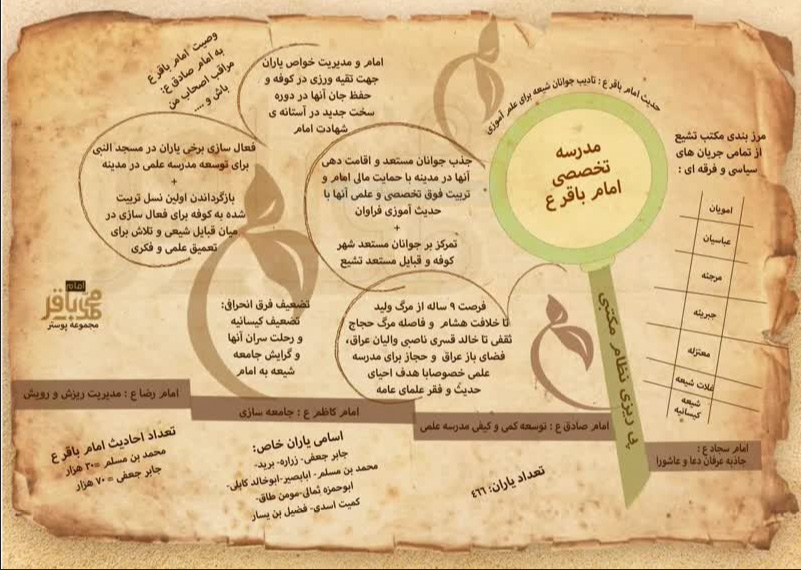 حدیث امام باقر ع : تادیب جوانان شیعه برای علم آموزی
مدرسه
تخصصی
امام باقر ع
پی ریزی نظام مکتبی
مرز بندی مکتب تشیع
از تمامی جریان های
سیاسی و فرقه ای :
امویان
عباسیان
مرجئه
جبریئه
معتزله
غلات شیعه
شیعه
کیسانیه
امام و مدیریت خواص یاران
جهت تقیه ورزی در کوفه و
حفظ جان آنها در دوره
سخت جدید در آستانه ی
شهادت امام
وصیت امام باقر ع
به امام صادق ع:
مراقب اصحاب من
باش و ....
جذب جوانان مستعد و اقامت دهی
آنها در مدینه با حمایت مالی امام و
تربیت فوق تخصصی و علمی آنها با
حدیث آموزی فراوان
+
تمرکز بر جوانان مستعد شهر
کوفه و قبایل مستعد تشیع
فعال سازی برخی یاران در مسجد النبی
برای توسعه مدرسه علمی در مدینه
+
بازگرداندن اولین نسل تربیت
شده به کوفه برای فعال سازی در
میان قبایل شیعی و تلاش برای
تعمیق علمی و فکری
فرصت ۹ ساله از مرگ ولید
تا خلافت هشام و فاصله مرگ حجاج
ثقفی تا خالد قسری ناصبی والیان عراق،
فضای باز عراق و حجاز برای مدرسه
علمی خصوصابا هدف احیای
حدیث و فقر علمای عامه
تضعیف فرق انحرافی:
تضعیف کیسانیه
و رحلت سران آنها
و گرایش جامعه
شیعه به امام
امام
باقر
مجموعه پوستر
امام سجاد ع :
جاذبه عرفان دعا و عاشورا
امام صادق ع : توسعه کمی و کیفی مدرسه علمی
امام کاظم ع : جامعه سازی
امام رضا ع : مدیریت ریزش و رویش
تعداد یاران: ٤٦٦
اسامی یاران خاص:
جابر جعفی- زراره- برید-
محمد بن مسلم- ابابصیر-ابوخالد کابلی-
ابوحمزه ثمالی-مومن طاق-
کمیت اسدی- فضیل بن یسار
تعداد احادیث امام باقر ع
محمد بن مسلم =۳۰ هزار
جابر جعفی = ۷۰ هزار